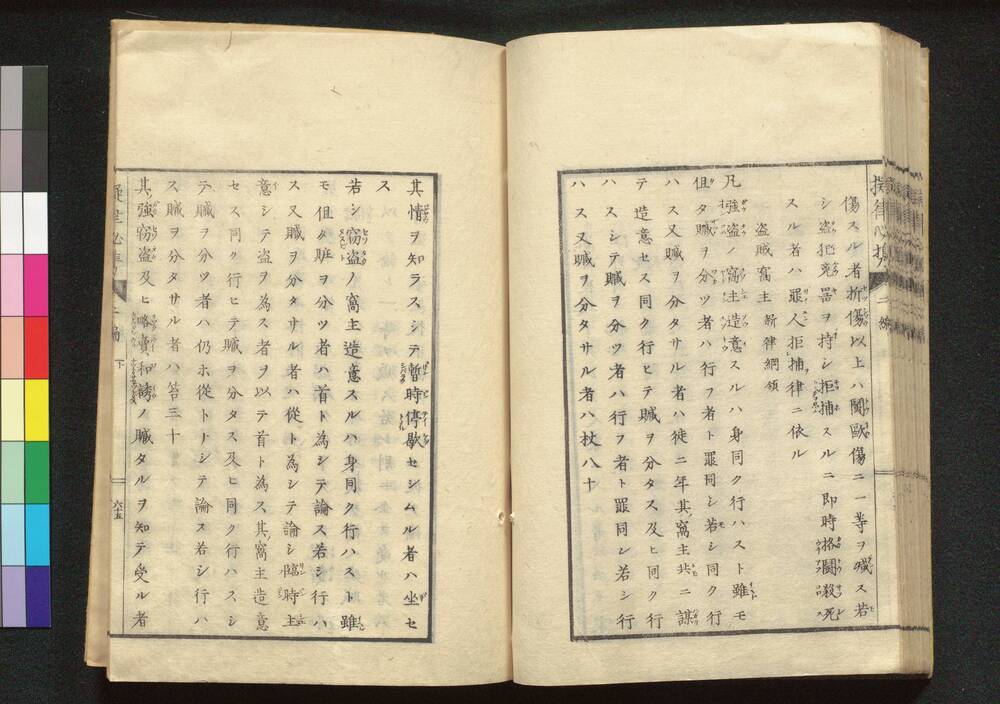 傷スル者折傷以上ハ鬪毆傷ニ一等ヲ減ス若
シ盗犯兇器ヲ持シ拒捕スルニ即時挌鬪殺死
スル者ハ罪人拒捕律ニ依ル
盗賊窩主 新律綱領
凡強盗ノ窩主造意スルハ身同ク行ハスト雖モ
但タ贓ヲ分ツ者ハ行フ者ト罪同シ若シ同ク行
ハス又贓ヲ分タサル者ハ徒二年其窩主共ニ謀
テ造意セス同ク行ヒテ贓ヲ分タス及ヒ同ク行
ハスシテ贓ヲ分ツ者ハ行フ者ト罪同シ若シ行
ハス又贓ヲ分タサル者ハ杖八十
其情ヲ知ラスシテ暫時停歇セシムル者ハ坐セ
ス
若シ窃盗ノ窩主造意スルハ身同ク行ハスト雖
モ但タ贓ヲ分ツ者ハ首ト為シテ論ス若シ行ハ
ス又贓ヲ分タサル者ハ從ト為シテ論シ臨時主
意シテ盗ヲ為ス者ヲ以テ首ト為ス其窩主造意
セス同ク行ヒテ贓ヲ分タス及ヒ同ク行ハスシ
テ贓ヲ分ツ者ハ仍ホ從トナシテ論ス若シ行ハ
ス贓ヲ分タサル者ハ笞三十
其強窃盗及ヒ略賣和誘ノ贓タルヲ知テ受ル者
下
六十五